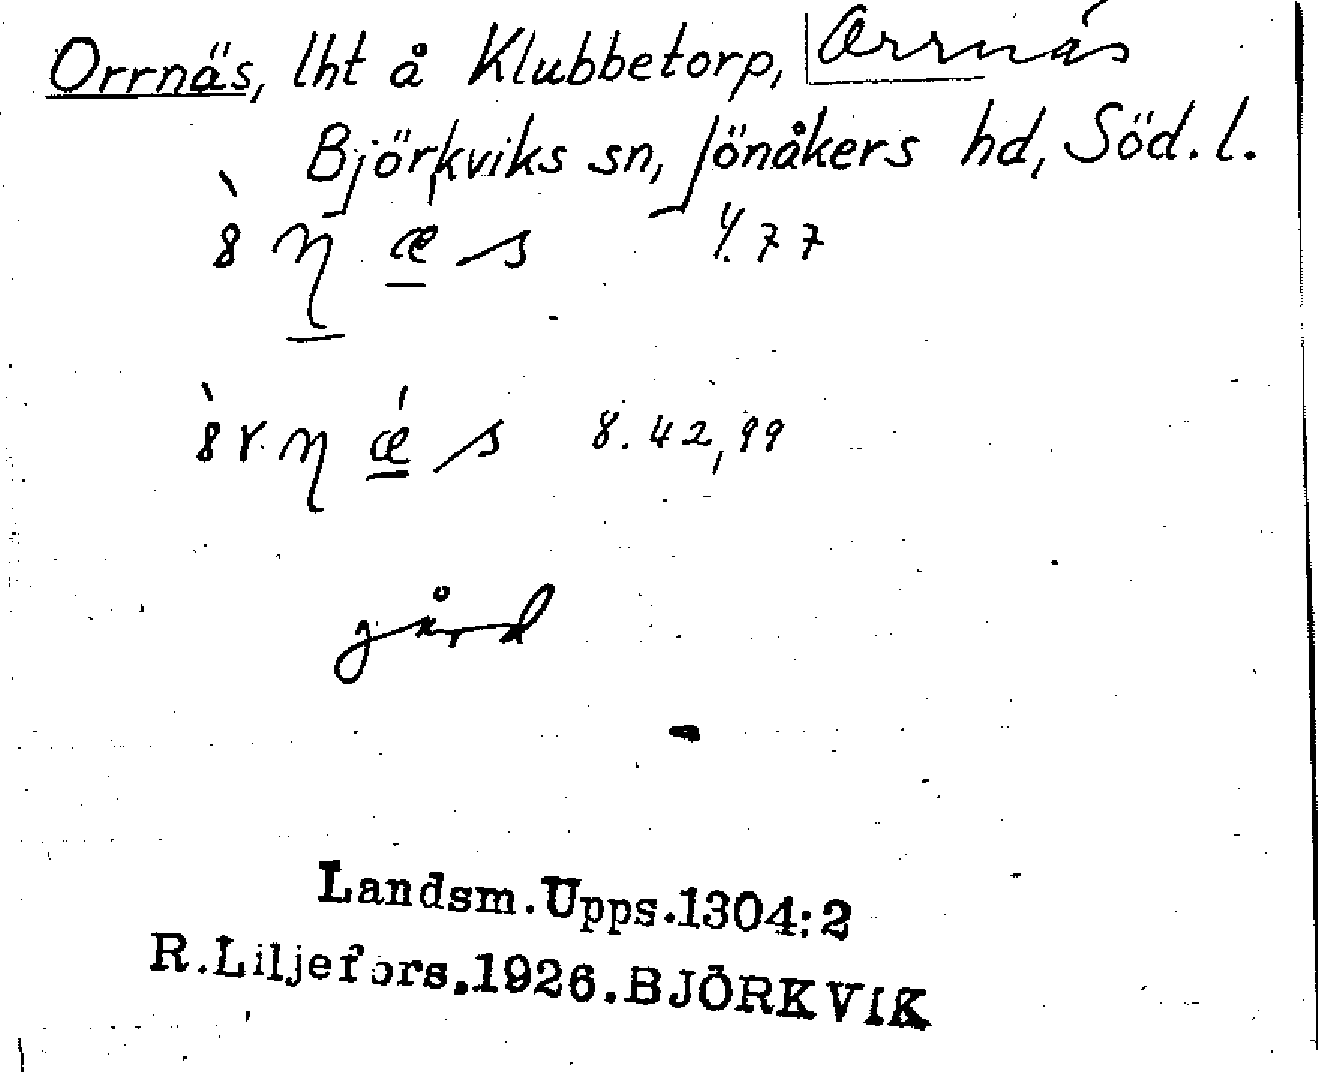 Orrnäs, lht å Klubbetorp, Orrnäs
Björkviks sn, Jönåkers hd, Söd. l.
8. 42, 99
gård
Landsm.Upps.1304:2
R.Liljefors.1926.BJÖRKVIK